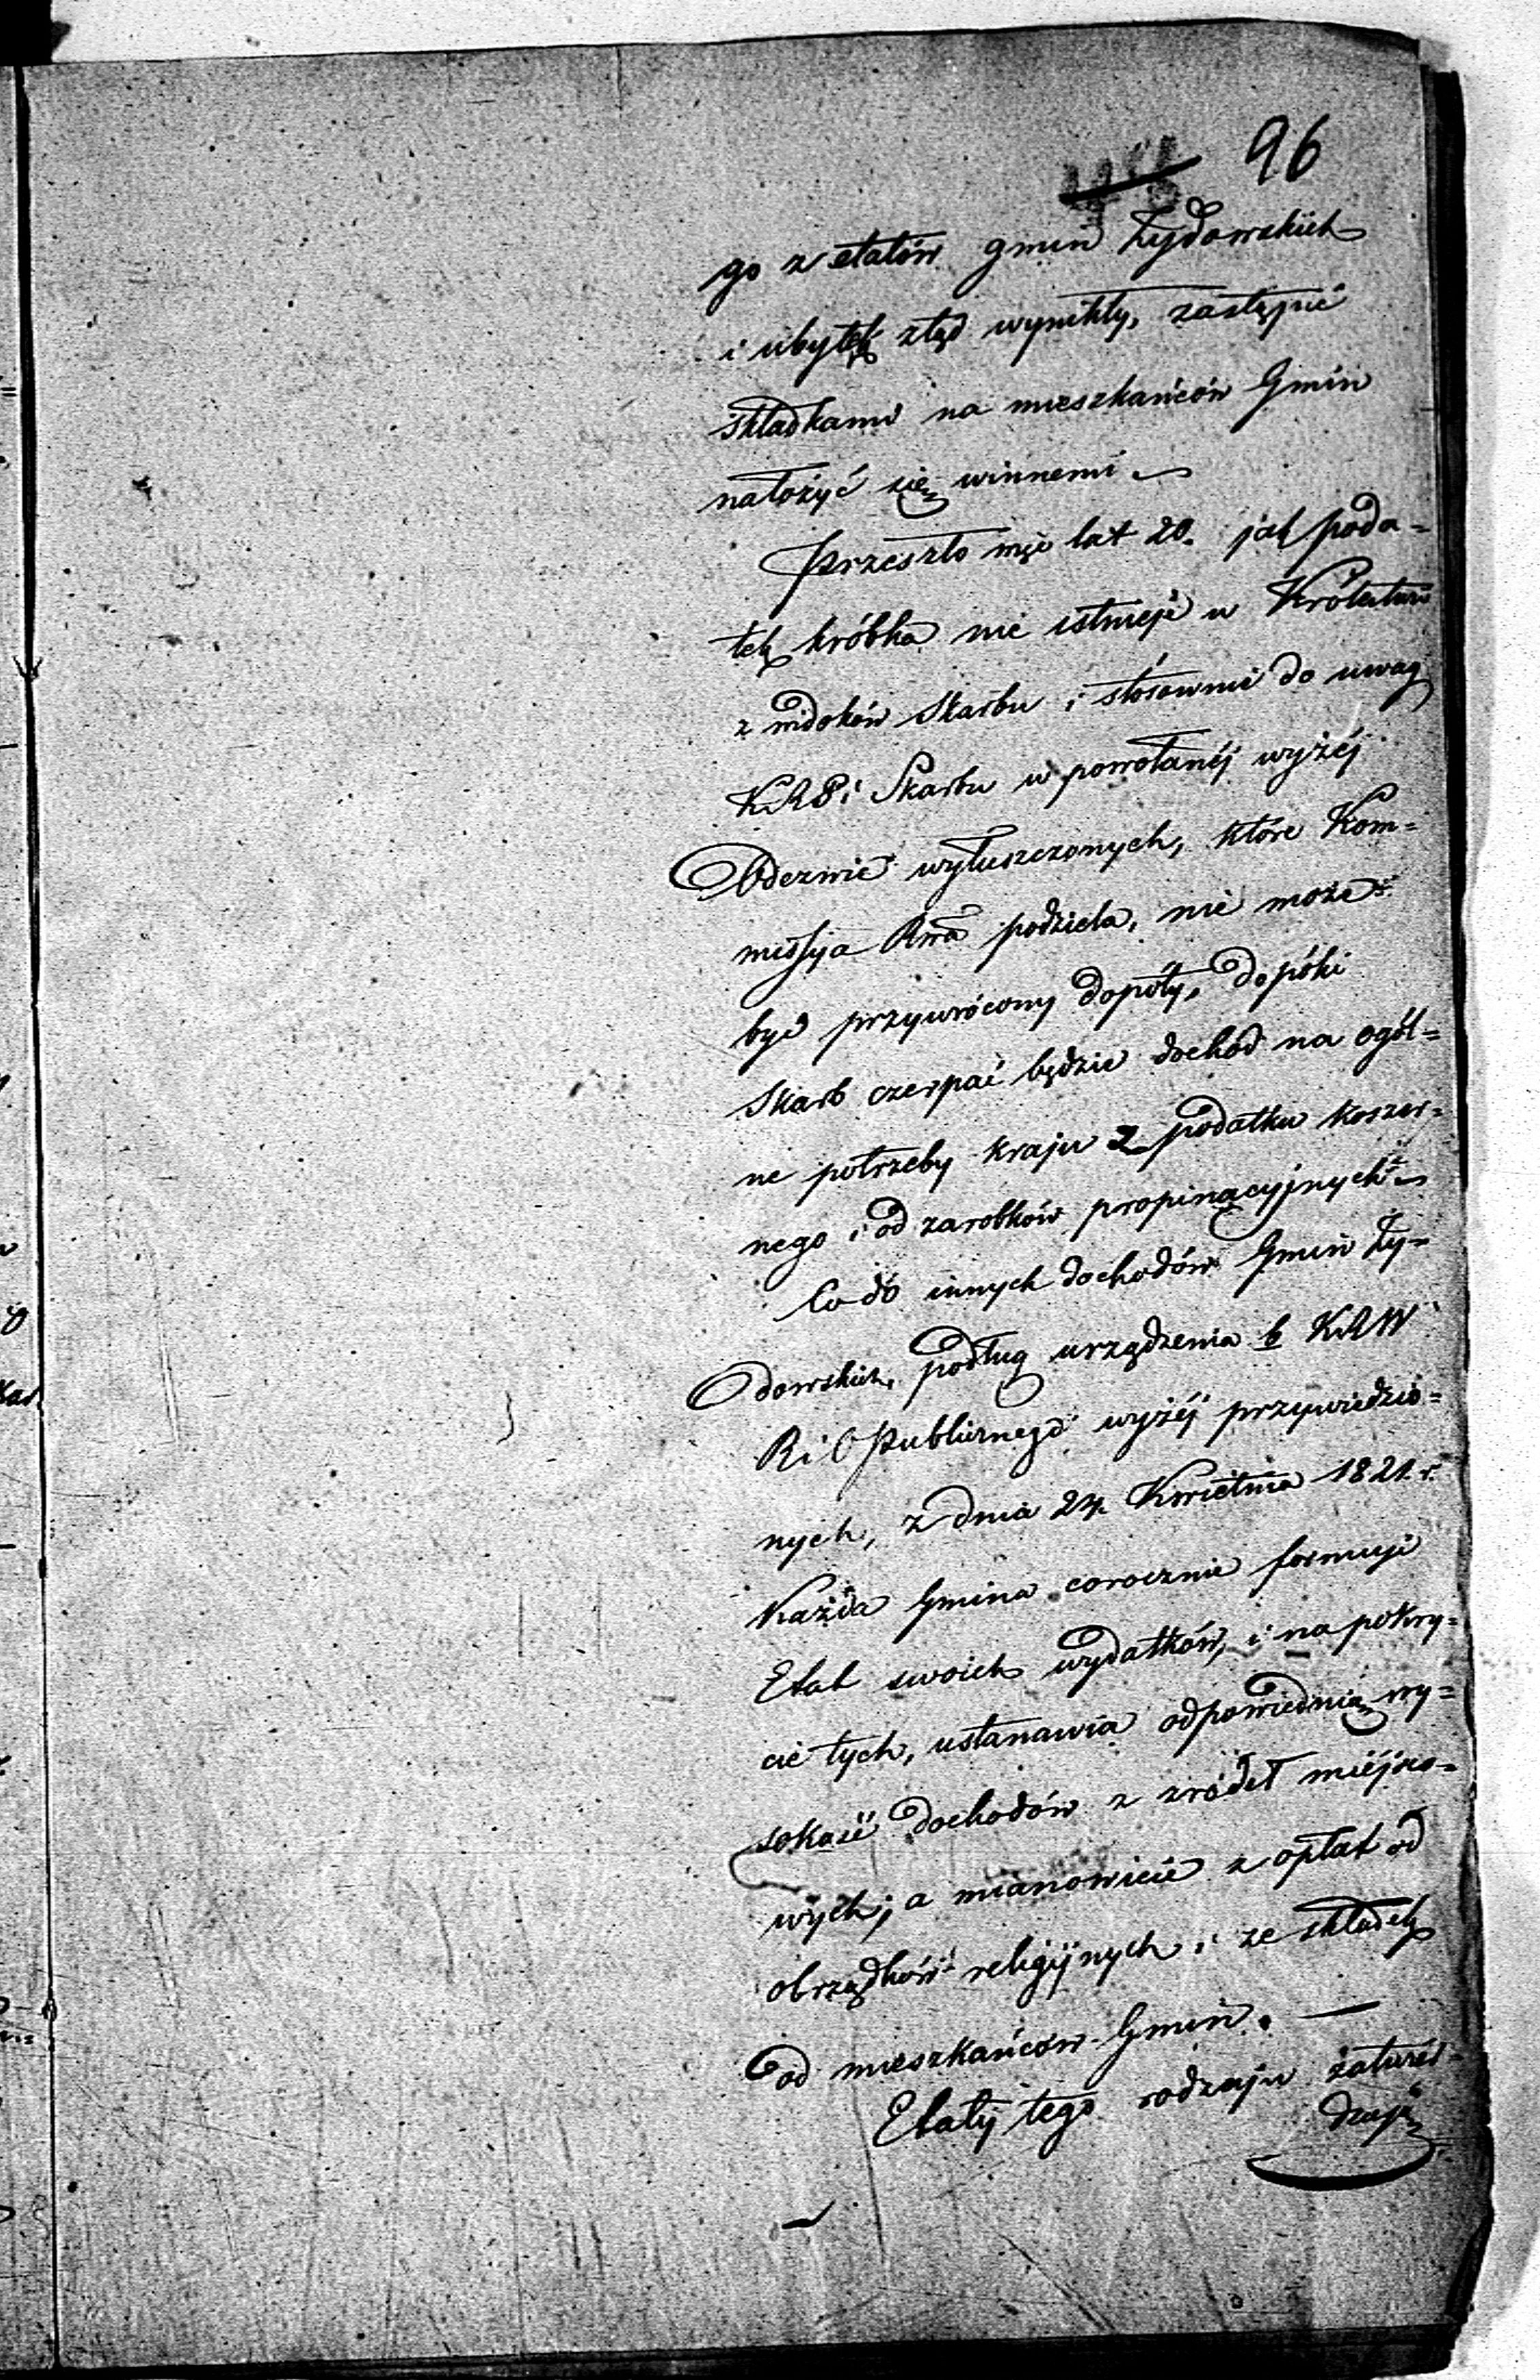 96
go z etatów gmin Żydowskich
i ubytek ztąd wynikły, zastąpić
składkami na mieszkańców Gmin
nałożyć się winnemi
Przeszło już lat 20. jak poda=
tek króbka nie istnieje w Królestwie
z widoków Skarbu i stósownie do uwag
KRP i Skarbu w powołanéj wyżéj
Odezwie wyłuszczonych, które Kom=
missya Rwa podziela, nie może
być przywrócony dopóty, dopóki
Skarb czerpać będzie dochód na ogól=
ne potrzeby kraju z podatku koszer=
nego i od zarobków propinacyjnych
Co do innych dochodów Gmin Ży=
dowskich, podług urządzenia b KRW
R i O Publicznego wyżéj przywiedzio=
nych, z dnia 24. Kwietnia 1821. r.
Każda Gmina corocznie formuje
Etat swoich wydatków, i na pokry=
cie tych, ustanawia odpowiednią wy=
sokość dochodów z źródeł miéjsco=
wych; a mianowicie z opłat od
obrządków religijnych i ze składek
od mieszkańców Gmin.
Etaty tego rodzaju zatwier=
dzają